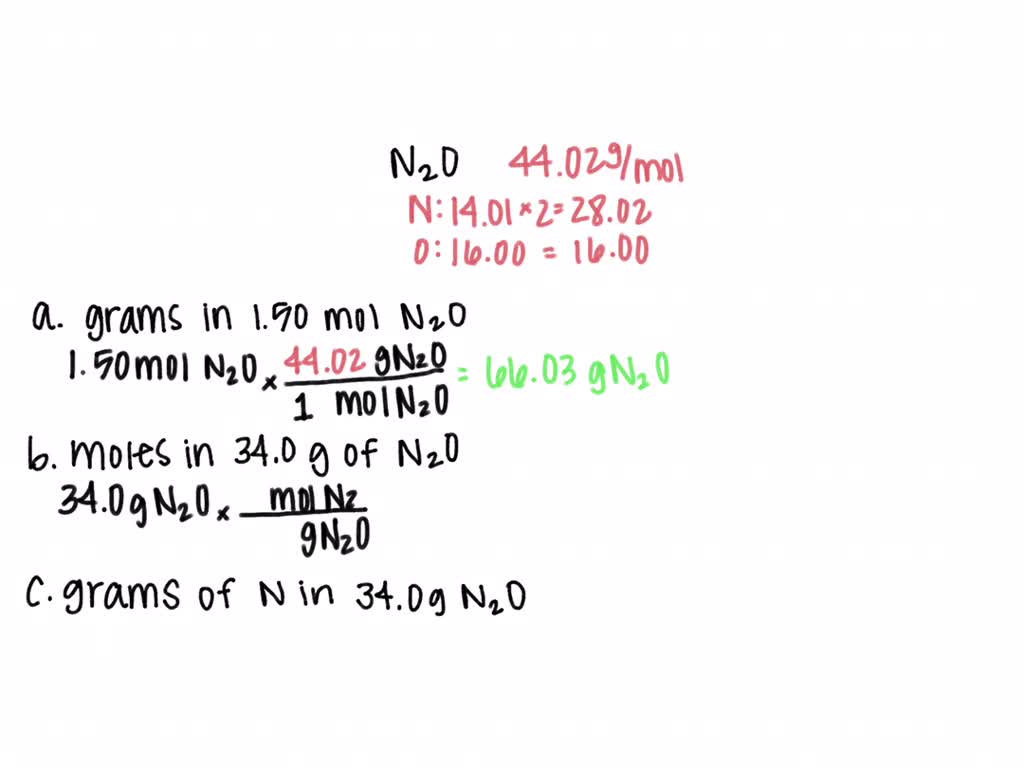 N₂O 44.02g/mol
N: 14.01 × 2 = 28.02
O: 16.00 = 16.00
a. grams in 1.50 mol N₂O
1.50 mol N₂O × 44.02 g N₂O / 1 mol N₂O = 66.03 g N₂O
b. moles in 34.0 g of N₂O
34.0 g N₂O × mol N₂ / g N₂O
c. grams of N in 34.0g N₂O